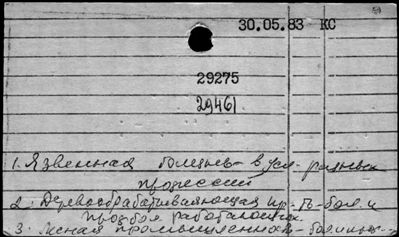 30.05.83 КС
29275
29461
1. Язвенная болезнь - в усл. разных
профессий
2. Деревообрабатывающая пр-ть - бол. и
проф. бол. работающих
3. Лесная промышленность - бол. и